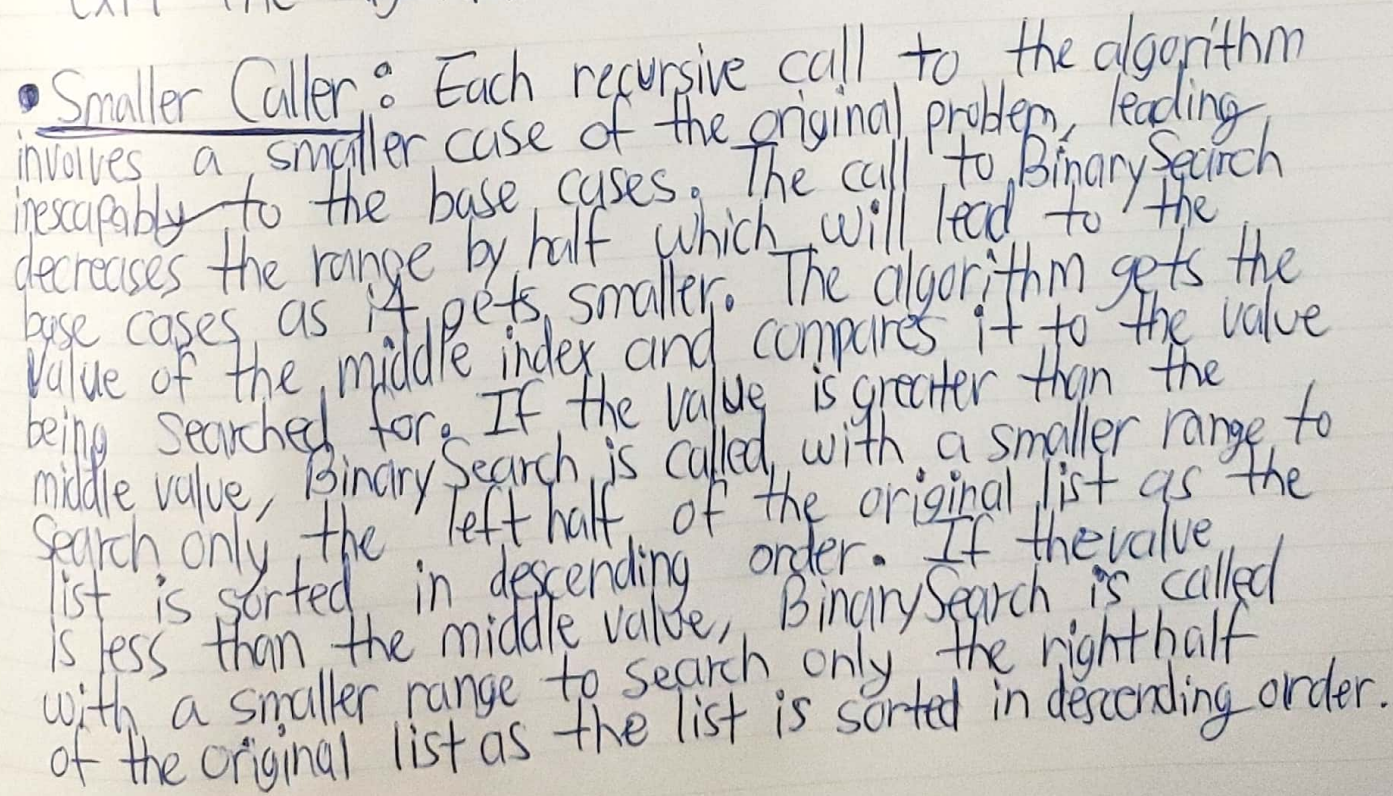 • Smaller Caller: Each recursive call to the algorithm
involves a smaller case of the original problem, leading
inescapably to the base cases. The call to BinarySearch
decreases the range by half which will lead to the
base cases as it gets smaller. The algorithm gets the
value of the middle index and compares it to the value
being searched for. If the value is greater than the
middle value, BinarySearch is called with a smaller range to
search only the left half of the original list as the
list is sorted in descending order. If the value
is less than the middle value, BinarySearch is called
with a smaller range to search only the right half
of the original list as the list is sorted in descending order.